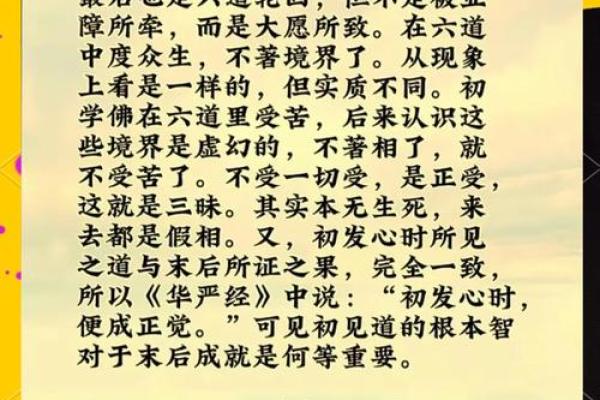 最后也是六道轮回，但不是被业
障所牵，而是大愿所致。在六道
中度众生，不著境界了。从现象
上看是一样的，但实质不同。初
学佛在六道里受苦，后来认识这
些境界是虚幻的，不著相了，就
不受苦了。不受一切受，是正受，
这就是三昧。其实本无生死，来
去都是假相。又，初发心时所见
之道与末后所证之果，完全一致，
所以《华严经》中说：“初发心时，
便成正觉。”可见初见道的根本智
对于末后成就是何等重要。